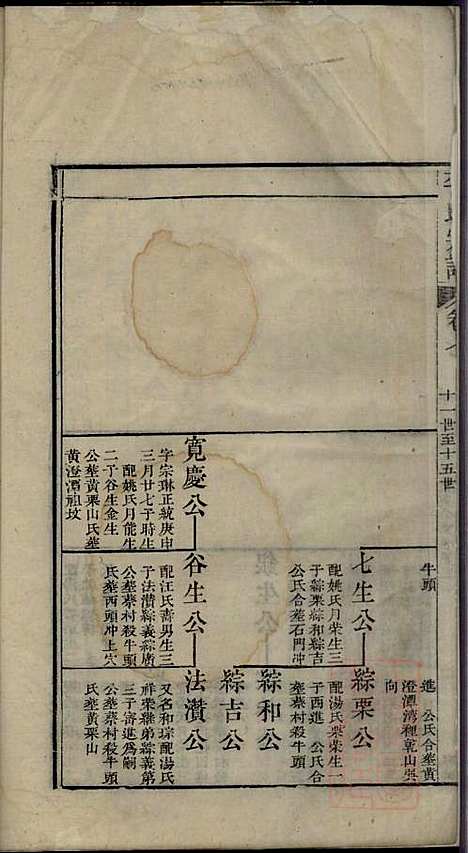 卷七
十一世至十五世
牛頭
進　公氏合塟黃
澄潭湾種乾山巽
向
七生公
配姚氏月柴生三
子綜栗綜和綜吉
公氏合塟石門冲
綜栗公
配湯氏栗柴生一
子西進　公氏合
塟蔡村殺牛頭
綜和公
綜吉公
寛慶公
字宗琳正統庚申
三月廿七子時生
配姚氏月能生
二子谷生金生
公塟黃栗山氏塟
黃澄潭祖坟
谷生公
配汪氏壽男生三
子法瓚綜義綜廣
公塟蔡村殺牛頭
氏塟西頭冲上穴
法瓚公
又名和琮配湯氏
祥柴继弟綜義第
三子富進爲嗣
公塟蔡村殺牛頭
氏塟黃栗山